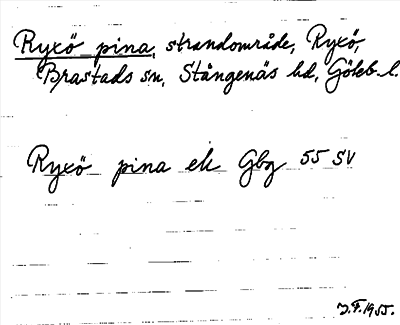 Ryxö pina, strandområde, Ryxö,
Brastads sn, Stångenäs hd, Göteb. l.
Ryxö pina ek Gbg 55 SV
J.F. 1955.